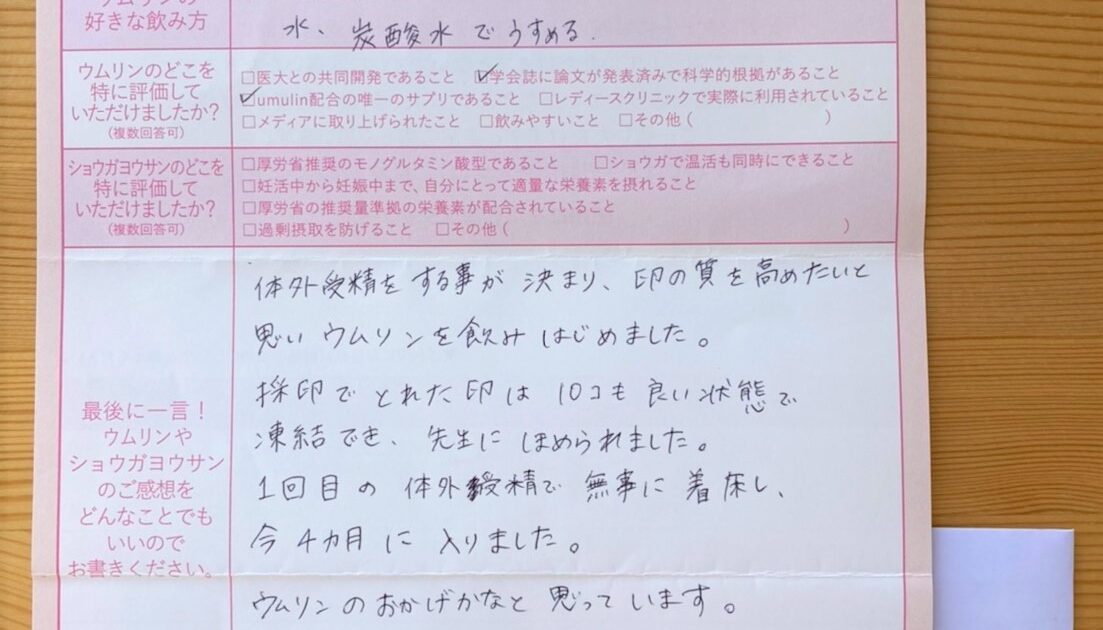 ウムリンの
好きな飲み方
水、炭酸水でうすめる.
ウムリンのどこを
特に評価して
いただけましたか?
(複数回答可)
□医大との共同開発であること ☑学会誌に論文が発表済みで科学的根拠があること
☑umulin配合の唯一のサプリであること □レディースクリニックで実際に利用されていること
□メディアに取り上げられたこと □飲みやすいこと □その他( )
ショウガヨウサンのどこを
特に評価して
いただけましたか?
(複数回答可)
□厚労省推奨のモノグルタミン酸型であること □ショウガで温活も同時にできること
□妊活中から妊娠中まで、自分にとって適量な栄養素を摂れること
□厚労省の推奨量準拠の栄養素が配合されていること
□過剰摂取を防げること □その他( )
最後に一言!
ウムリンや
ショウガヨウサン
のご感想を
どんなことでも
いいので
お書きください。
体外受精をする事が決まり、印の質を高めたいと
思いウムリンを飲みはじめました。
採印でとれた印は10コも良い状態で
凍結でき、先生にほめられました。
1回目の体外受精で無事に着床し、
今4カ月に入りました。
ウムリンのおかげかなと思っています。